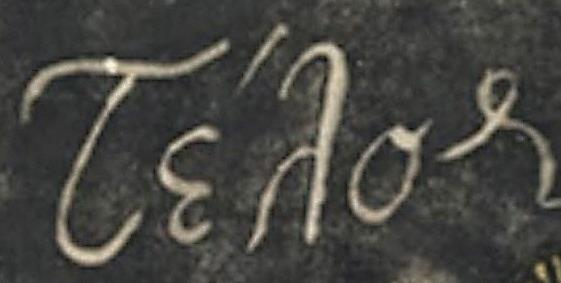 Τέλος